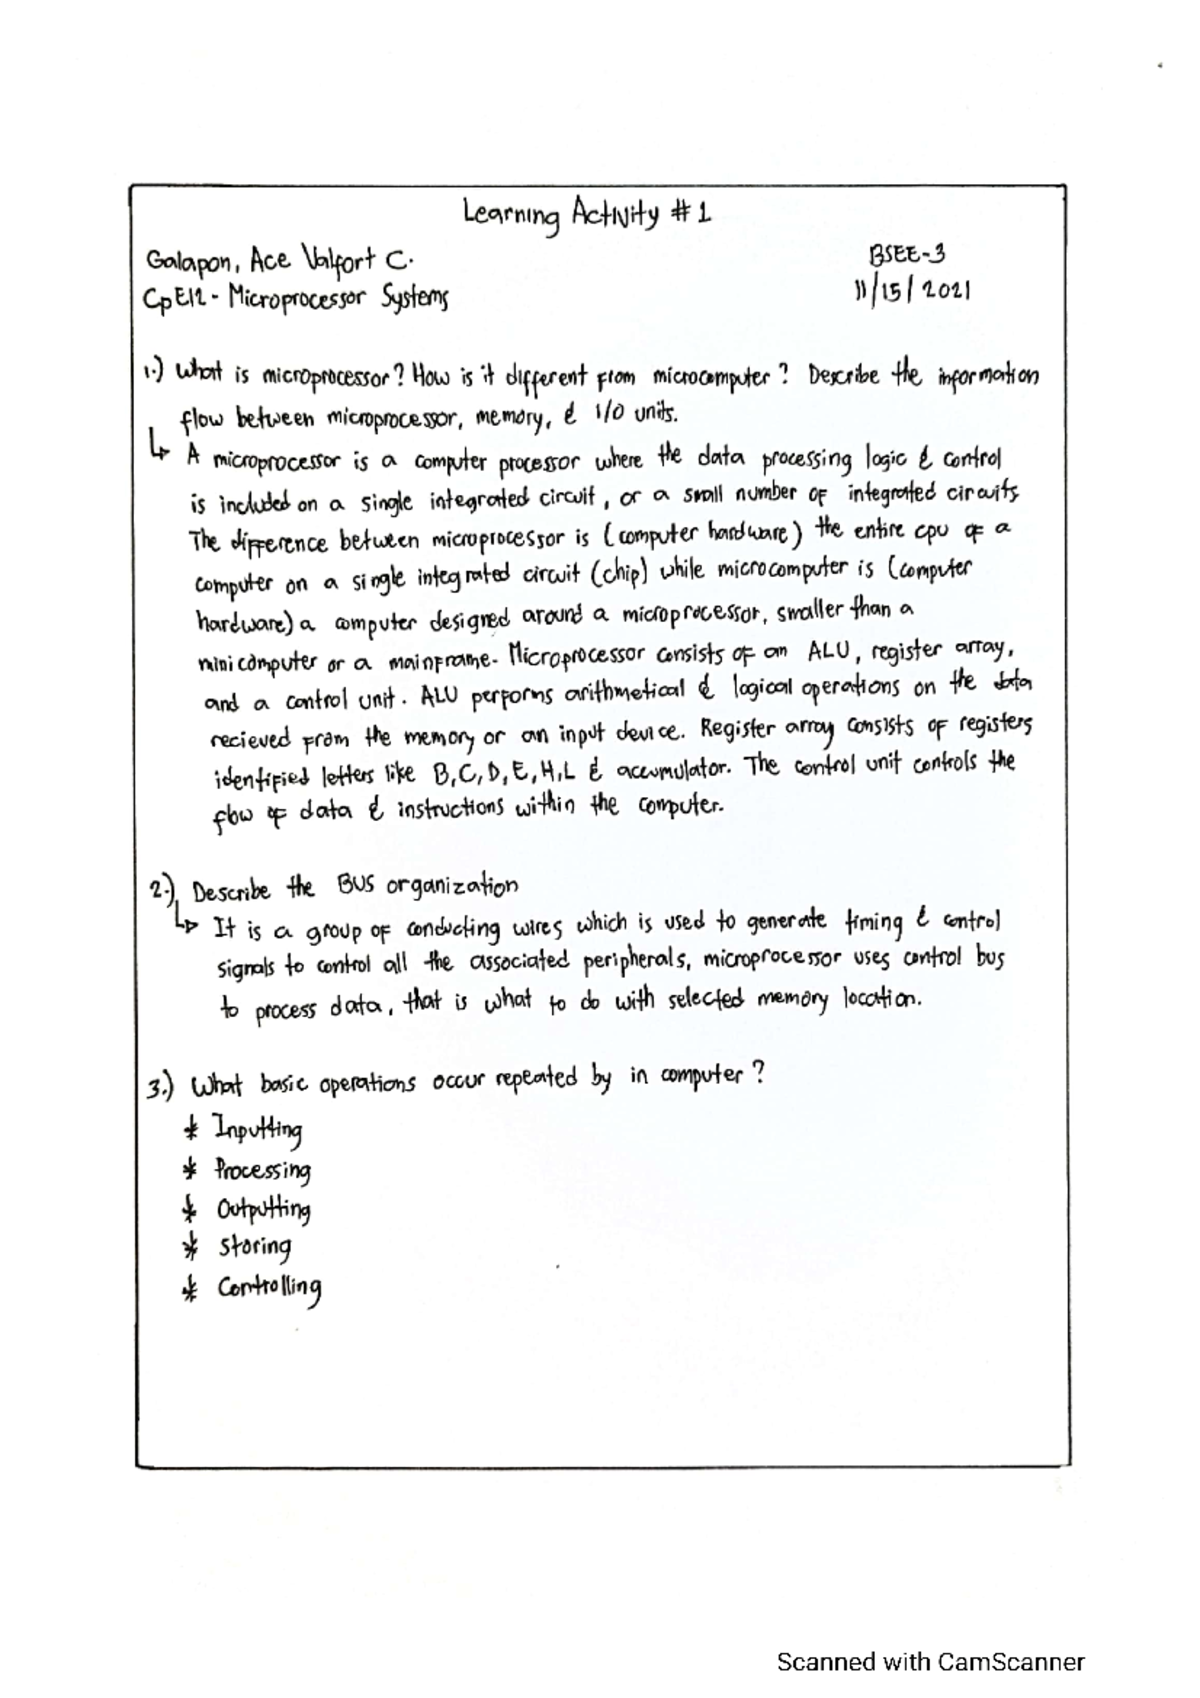 Learning Activity #1
Galapon, Ace Valfort C.
BSEE-3
CpE112 - Microprocessor Systems
11/15/2021
1.) What is microprocessor? How is it different from microcomputer? Describe the information
flow between microprocessor, memory, & I/O units.
↳ A microprocessor is a computer processor where the data processing logic & control
is included on a single integrated circuit, or a small number of integrated circuits
The difference between microprocessor is (computer hardware) the entire cpu of a
computer on a single integrated circuit (chip) while microcomputer is (computer
hardware) a computer designed around a microprocessor, smaller than a
minicomputer or a mainframe. Microprocessor consists of an ALU, register array,
and a control unit. ALU performs arithmetical & logical operations on the data
recieved from the memory or an input device. Register array consists of registers
identified letters like B,C,D,E,H,L & accumulator. The control unit controls the
flow of data & instructions within the computer.
2.) Describe the BUS organization
↳ It is a group of conducting wires which is used to generate timing & control
signals to control all the associated peripherals, microprocessor uses control bus
to process data, that is what to do with selected memory location.
3.) What basic operations occur repeated by in computer?
* Inputting
* Processing
* Outputting
* Storing
* Controlling
Scanned with CamScanner